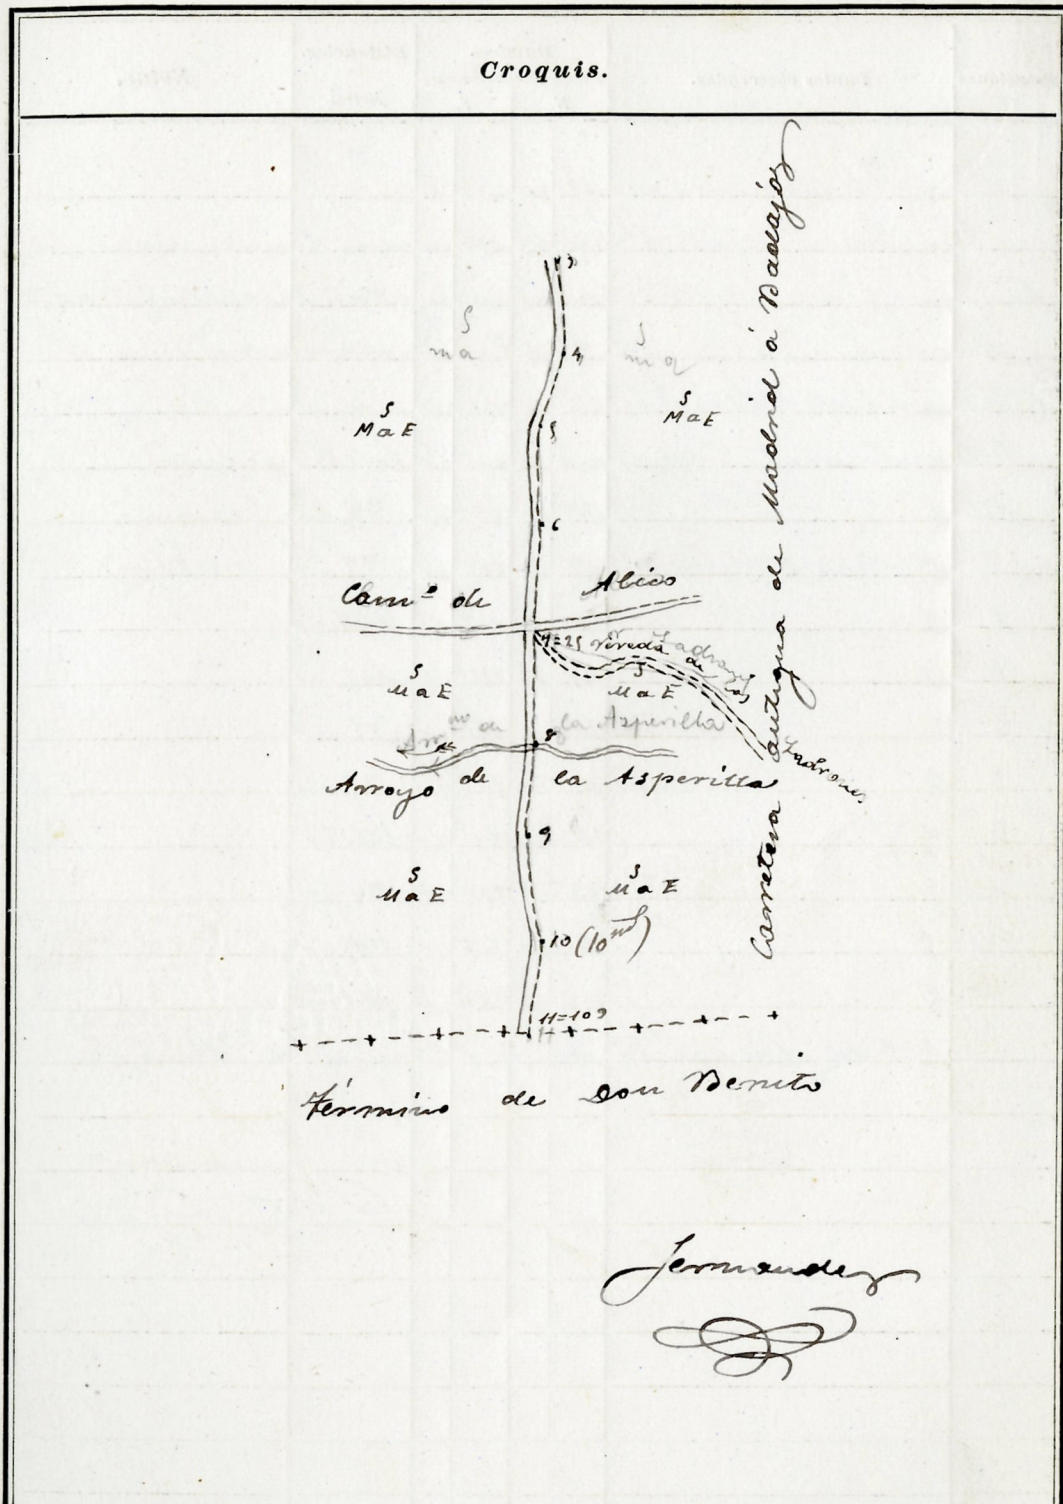 Croquis.
Carretera antigua de Madrid á Badajoz
3
S
m a
S
m a
4
S
M a E
S
M a E
5
6
Cam.º de Abico
7=25 Vereda de los Ladrones
S
M a E
S
M a E
Arr.yo de la Asperilla
8
Arroyo de la Asperilla
9
S
M a E
S
M a E
10
11=109
Término de Don Benito
Fernandez